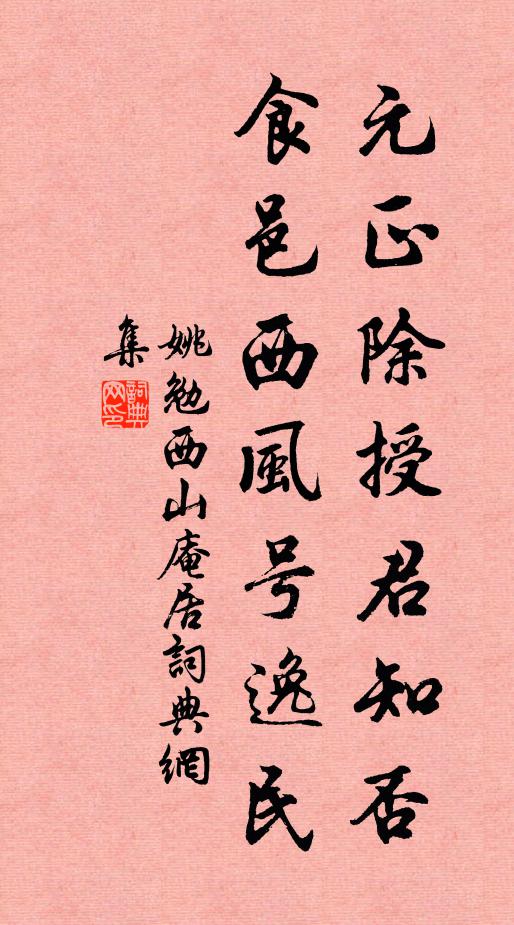 元正除授君知否
食邑西風号逸民
姚勉西山庵居詞典網
集
詞典網印